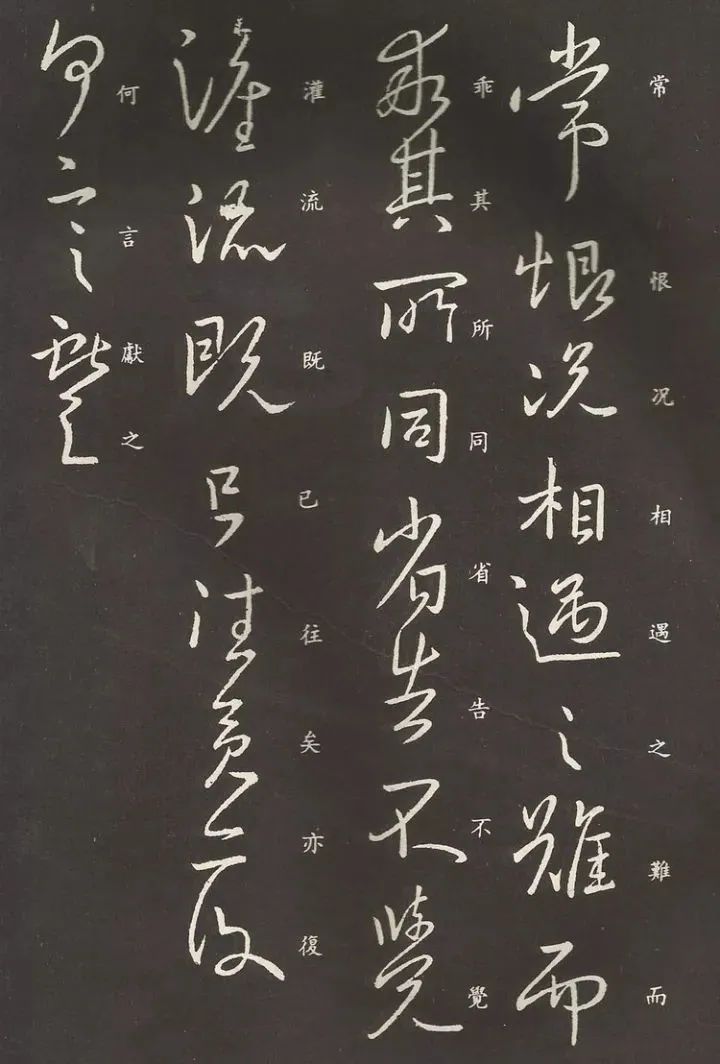 常恨况相遇之難而
乖其所同省告不覺
灌流既已往矣亦復
何言獻之